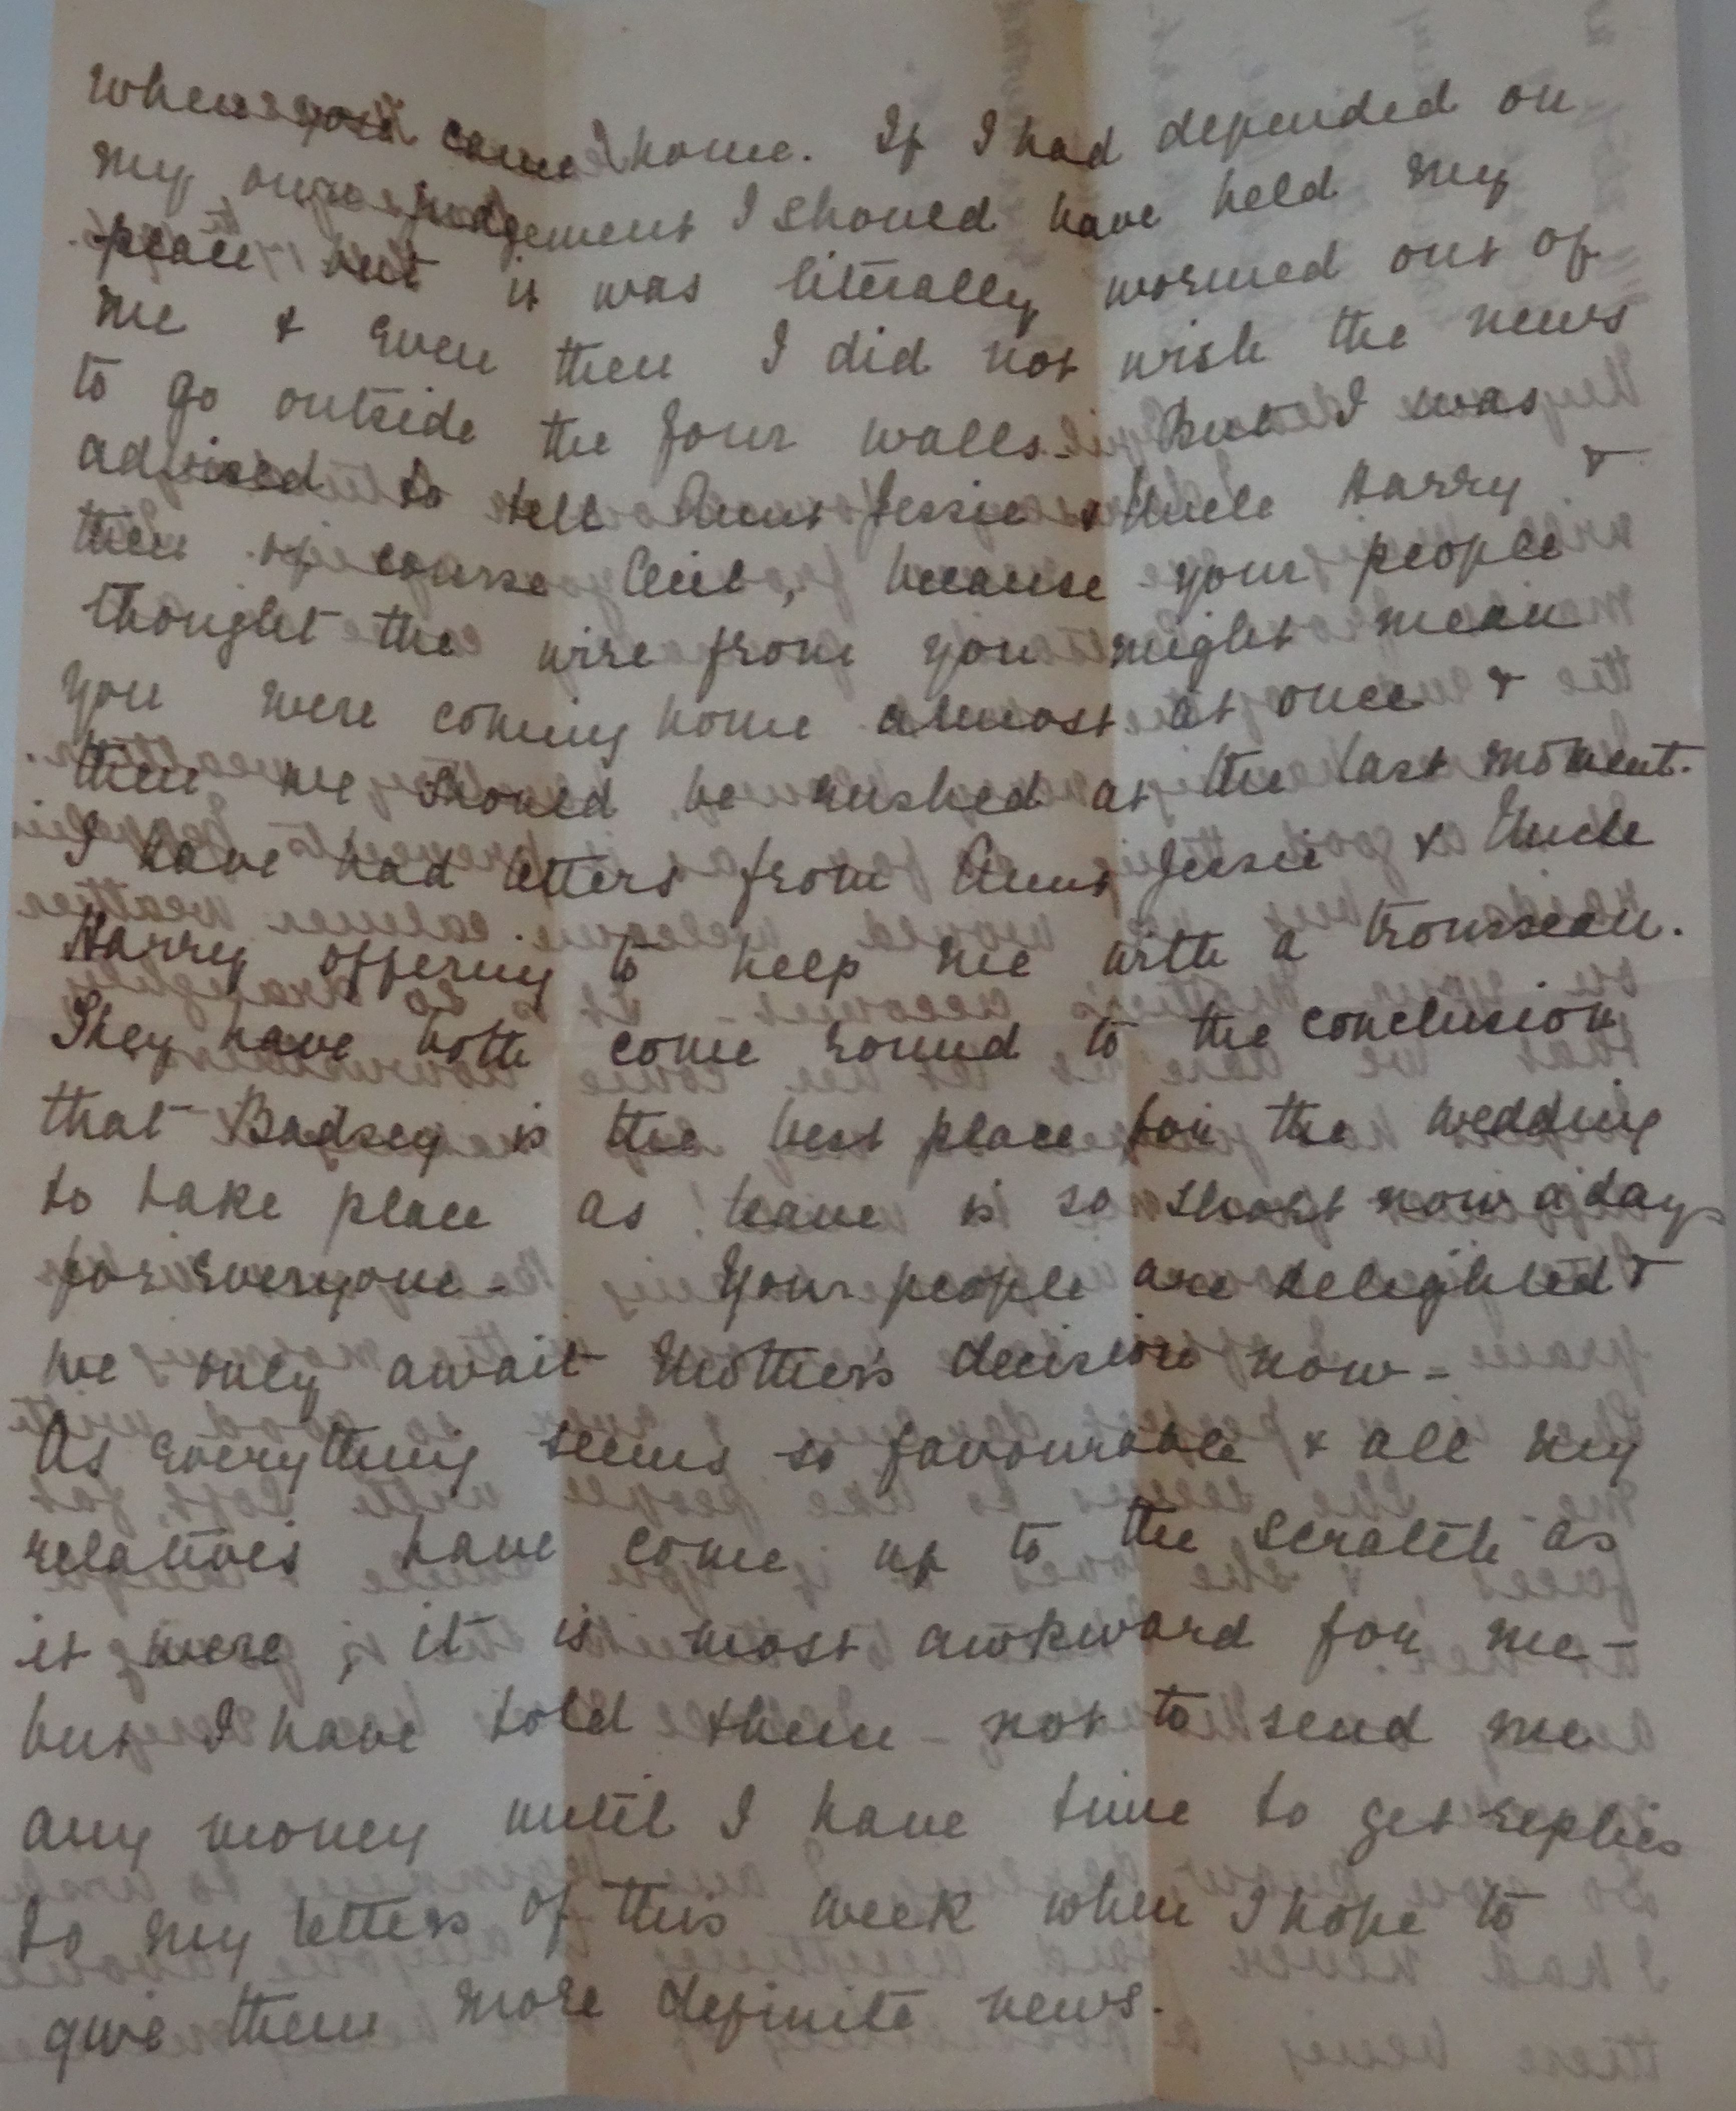 when you come home. If I had depended on
my own judgement I should have held my
peace but it was literally wormed out of
me & even then I did not wish the news
to go outside the four walls. But I was
advised to tell Aunt Jessie & Uncle Harry &
then of course Cecil, because your people
thought the wire from you might mean
you were coming home almost at once &
then we should be rushed at the last moment.
I have had letters from Aunt Jessie & Uncle
Harry offering to help me with a trousseau.
They have both come round to the conclusion
that Badsey is the best place for the wedding
to take place as leave is so short now a days
for everyone - Your people are delighted &
we only await Mother's decision now -
As everything seems so favourable & all my
relatives have come up to the scratch as
it were, it is most awkward for me -
but I have told them - not to send me
any money until I have time to get replies
to my letters of this week when I hope to
give them more definite news.